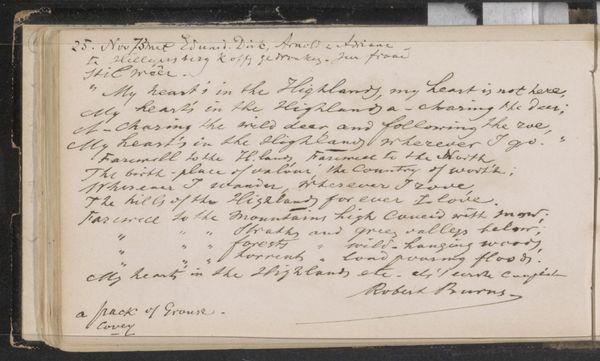 25. Nov 75 met Eduard. Dirk, Arnold & Adriane
te Hillegersberg koffy gedronken.
Stil weer.
" My heart's in the Highlands, my heart is not here,
My heart's in the Highlands a-chasing the deer;
A-Chasing the wild dear, and following the roe,
My heart's in the Highland, wherever I go. "
Farewell to the H.lands, Farewell to the North,
The birth-place of valour, the Country of worth;
Wherever I wander, wherever I rove,
The hills of the Highlands for ever I love.
Farewell to the Mountains high Cover'd with snow;
" " " Straths and green valleys below;
" " " forests " wild-hanging woods,
" " " torrents " loud pouring floods.
My heart's in the Highlands etc.
Robert Burns
a pack of Grouse.
Covey